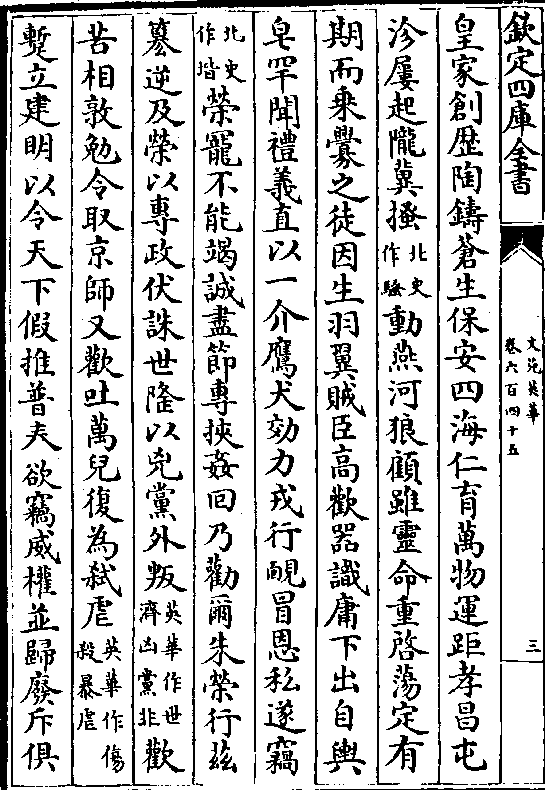 欽定四庫全書
文苑英華
卷六百四十五
三
皇家創歷陶鑄蒼生保安四海仁育萬物運距孝昌屯
沴屢起隴冀搔北史作騷動燕河狼顧雖靈命重啓蕩定有
期而乘釁之徒因生羽翼賊臣高歡器識庸下出自輿
皁罕聞禮義直以一介鷹犬効力戎行靦冒恩私遂竊
北史作堦榮寵不能竭誠盡節專挾姦回乃勸爾朱榮行茲
簒逆及榮以專政伏誅世隆以兇黨外叛英華作世濟凶黨非歡
苦相敦勉令取京師又歡吐萬兒復為弑虐英華作傷殺暴虐
蹔立建明以令天下假推普夫欲竊威權並歸廢斥俱